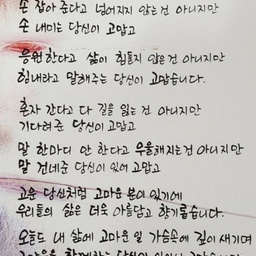 손 잡아 준다고 넘어지지 않는 건 아니지만
손 내미는 당신이 고맙고
응원한다고 삶이 힘들지 않은 건 아니지만
힘내라고 말해주는 당신이 고맙습니다.
혼자 간다고 다 길을 잃는 건 아니지만
기다려준 당신이 고맙고
말 한마디 안 한다고 우울해지는건 아니지만
말 건네준 당신이 있어 고맙고
고운 당신처럼 고마운 분이 있기에
우리들의 삶은 더욱 아름답고 향기롭습니다.
오늘도 내 삶에 고마운 일 가슴속에 깊이 새기며